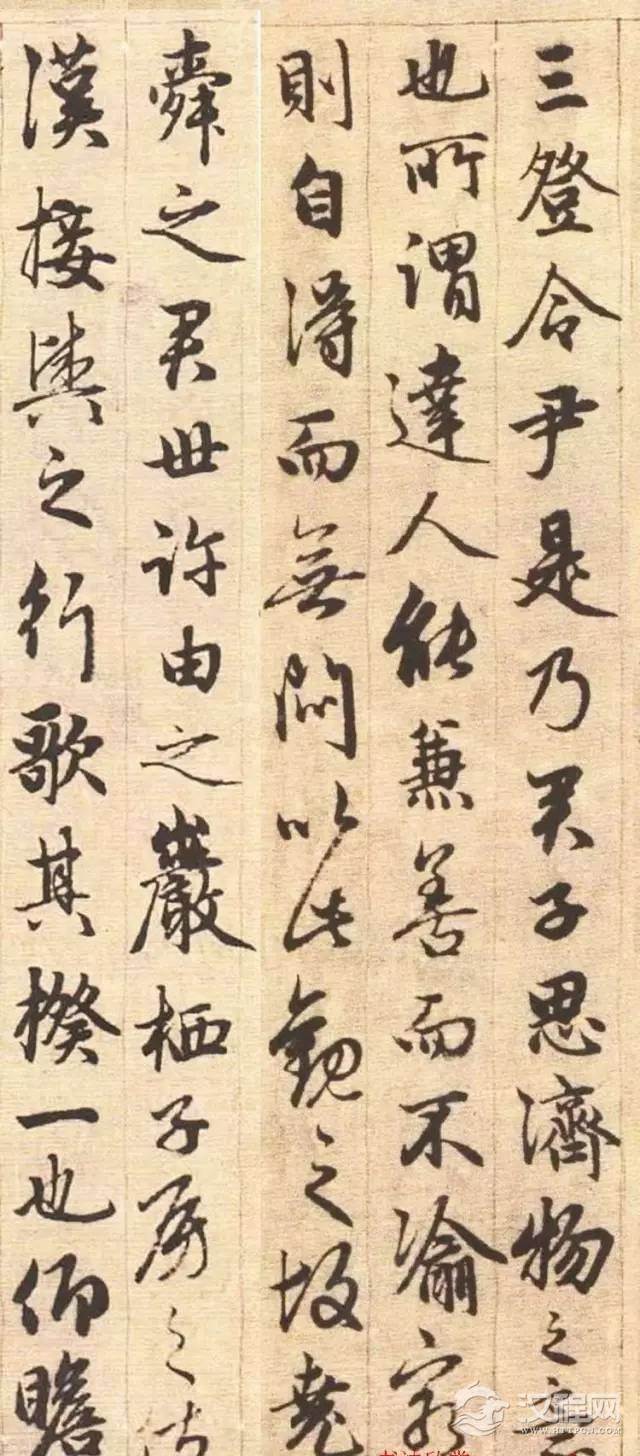 三登令尹是乃君子思濟物之意
也所謂達人能兼善而不渝窮
則自得而無悶以此觀之故堯
舜之君世許由之巖栖子房之佐
漢接輿之行歌其揆一也仰瞻
汉程网
HTTPCN.COM